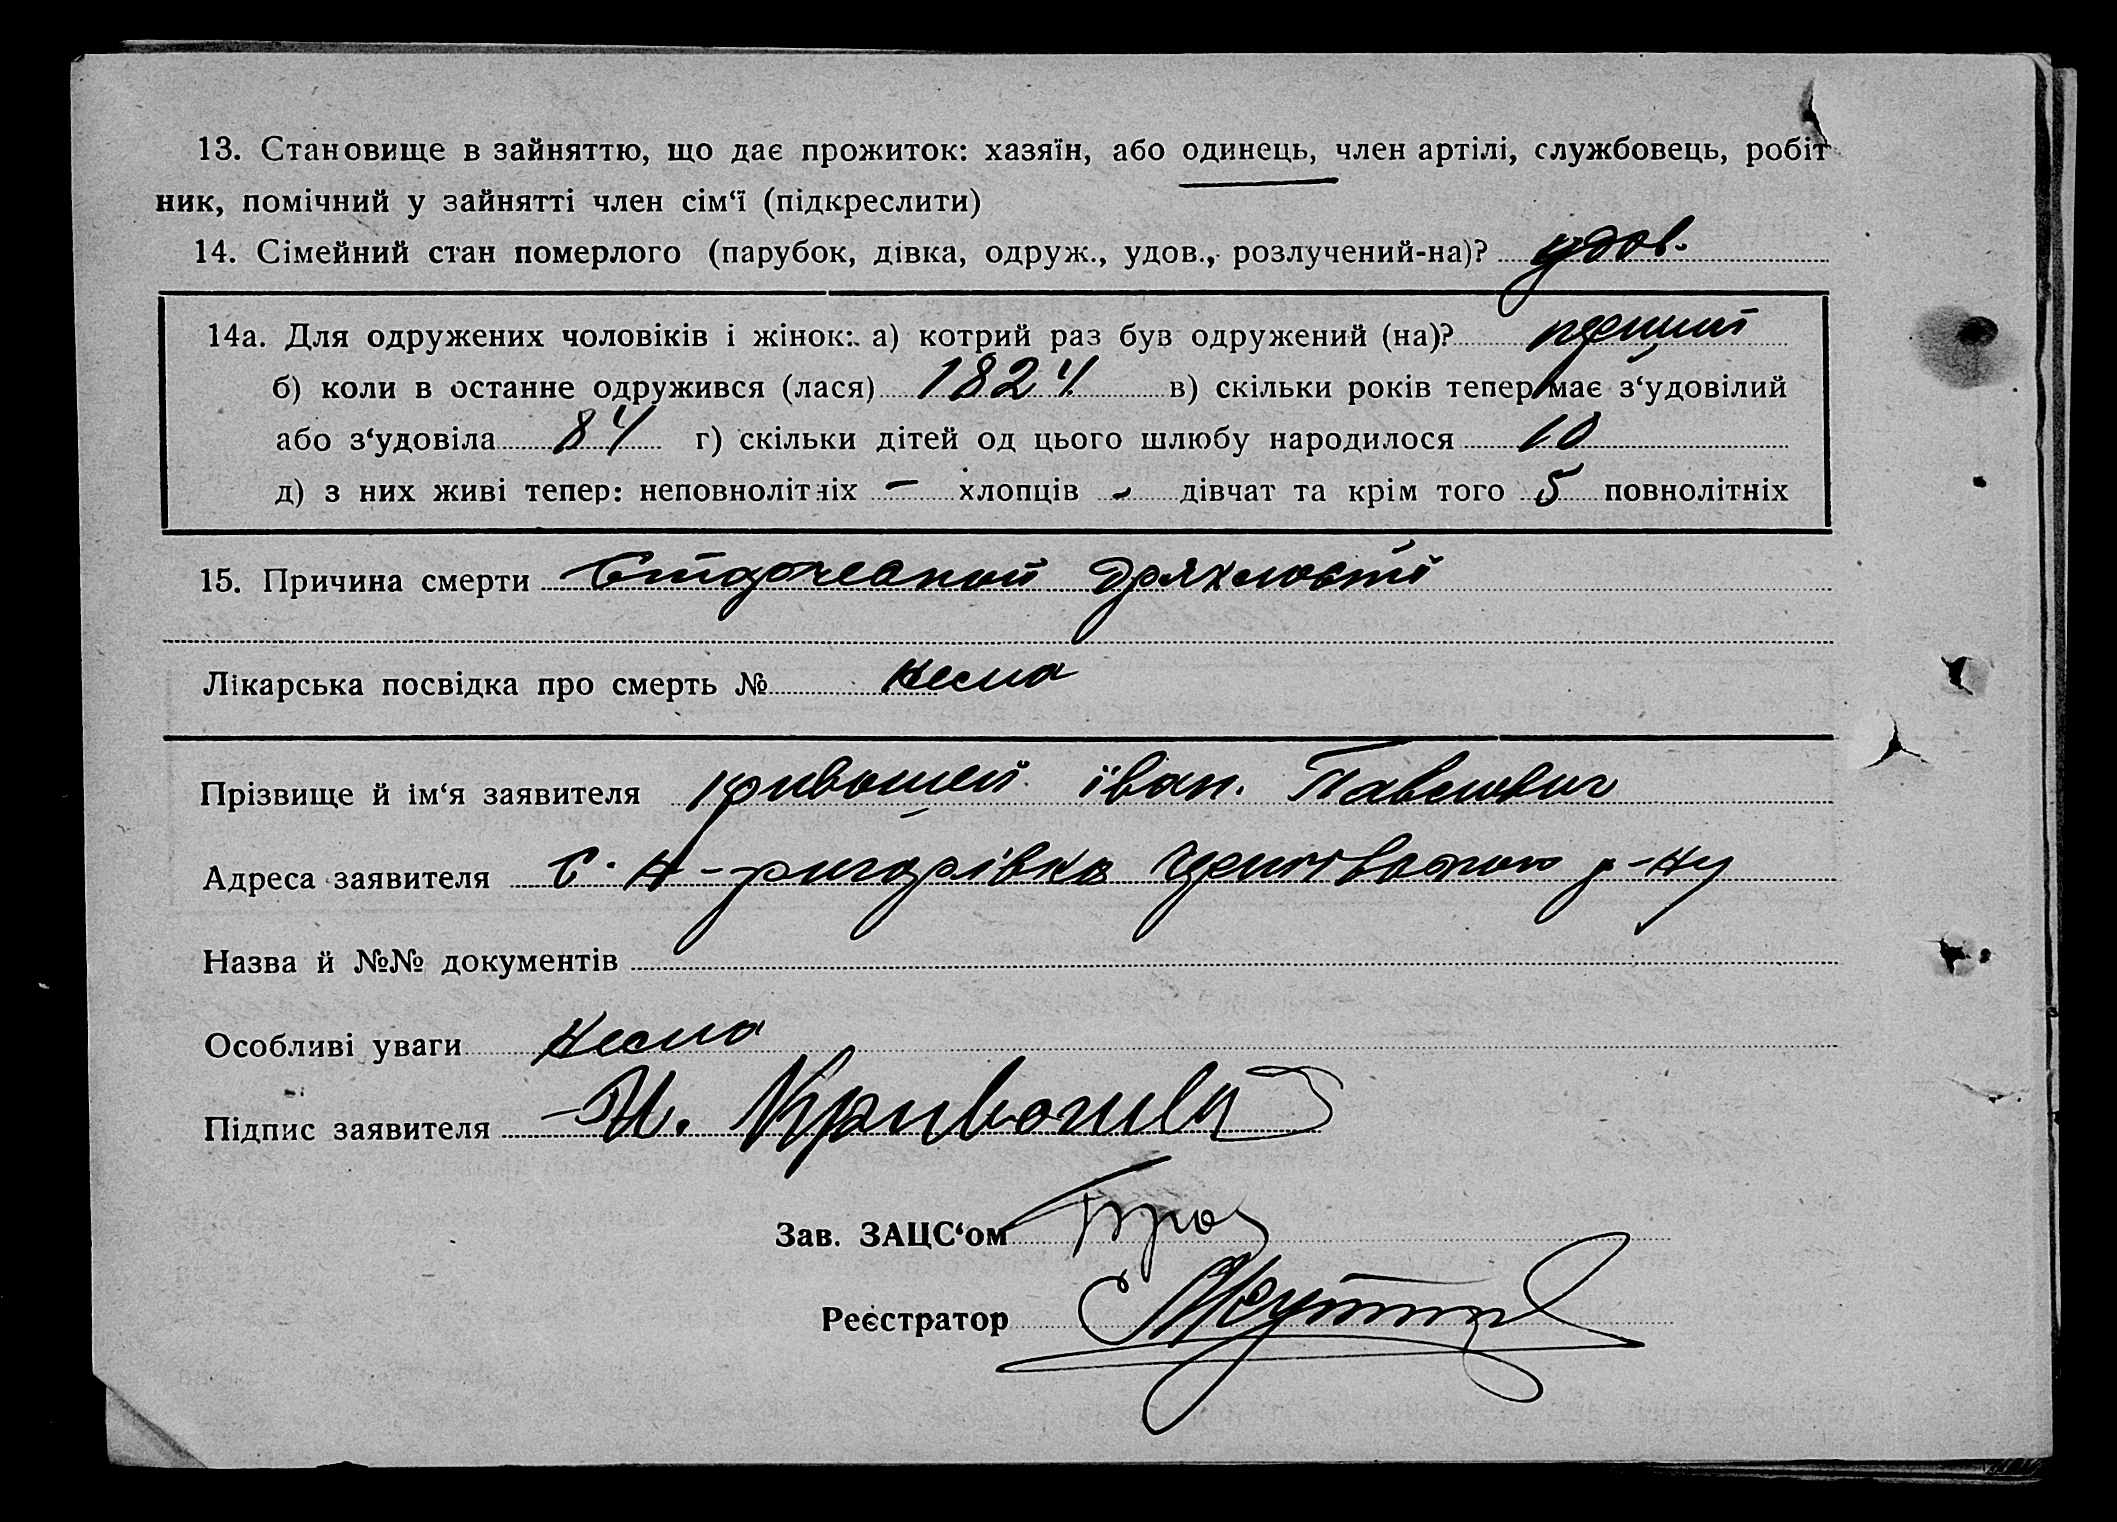 13. Становище в зайняттю, що дає прожиток: хазяїн, або одинець, член артілі, службовець, робіт
ник, помічний у зайнятті член сім‘ї (підкреслити)
14. Сімейний стан померлого (парубок, дівка, одруж., удов., розлучений-на)? удов.
14а. Для одружених чоловіків і жінок: а) котрий раз був одружений (на)? перший
б) коли в останнє одружився (лася) 1824 в) скільки років тепер має з‘удовілий
або з‘удовіла 84 г) скільки дітей од цього шлюбу народилося 10
д) з них живі тепер: неповнолітніх - хлопців - дівчат та крім того 5 повнолітніх
15. Причина смерти Старческой дряхлості
Лікарська посвідка про смерть № нема
Прізвище й ім‘я заявителя Кривошей Іван. Павлович
Адреса заявителя с. Н-ригорівка р-ну
Назва й №№ документів
Особливі уваги нема
Підпис заявителя И. Кривошей
Зав. ЗАЦС‘ом
Реєстратор